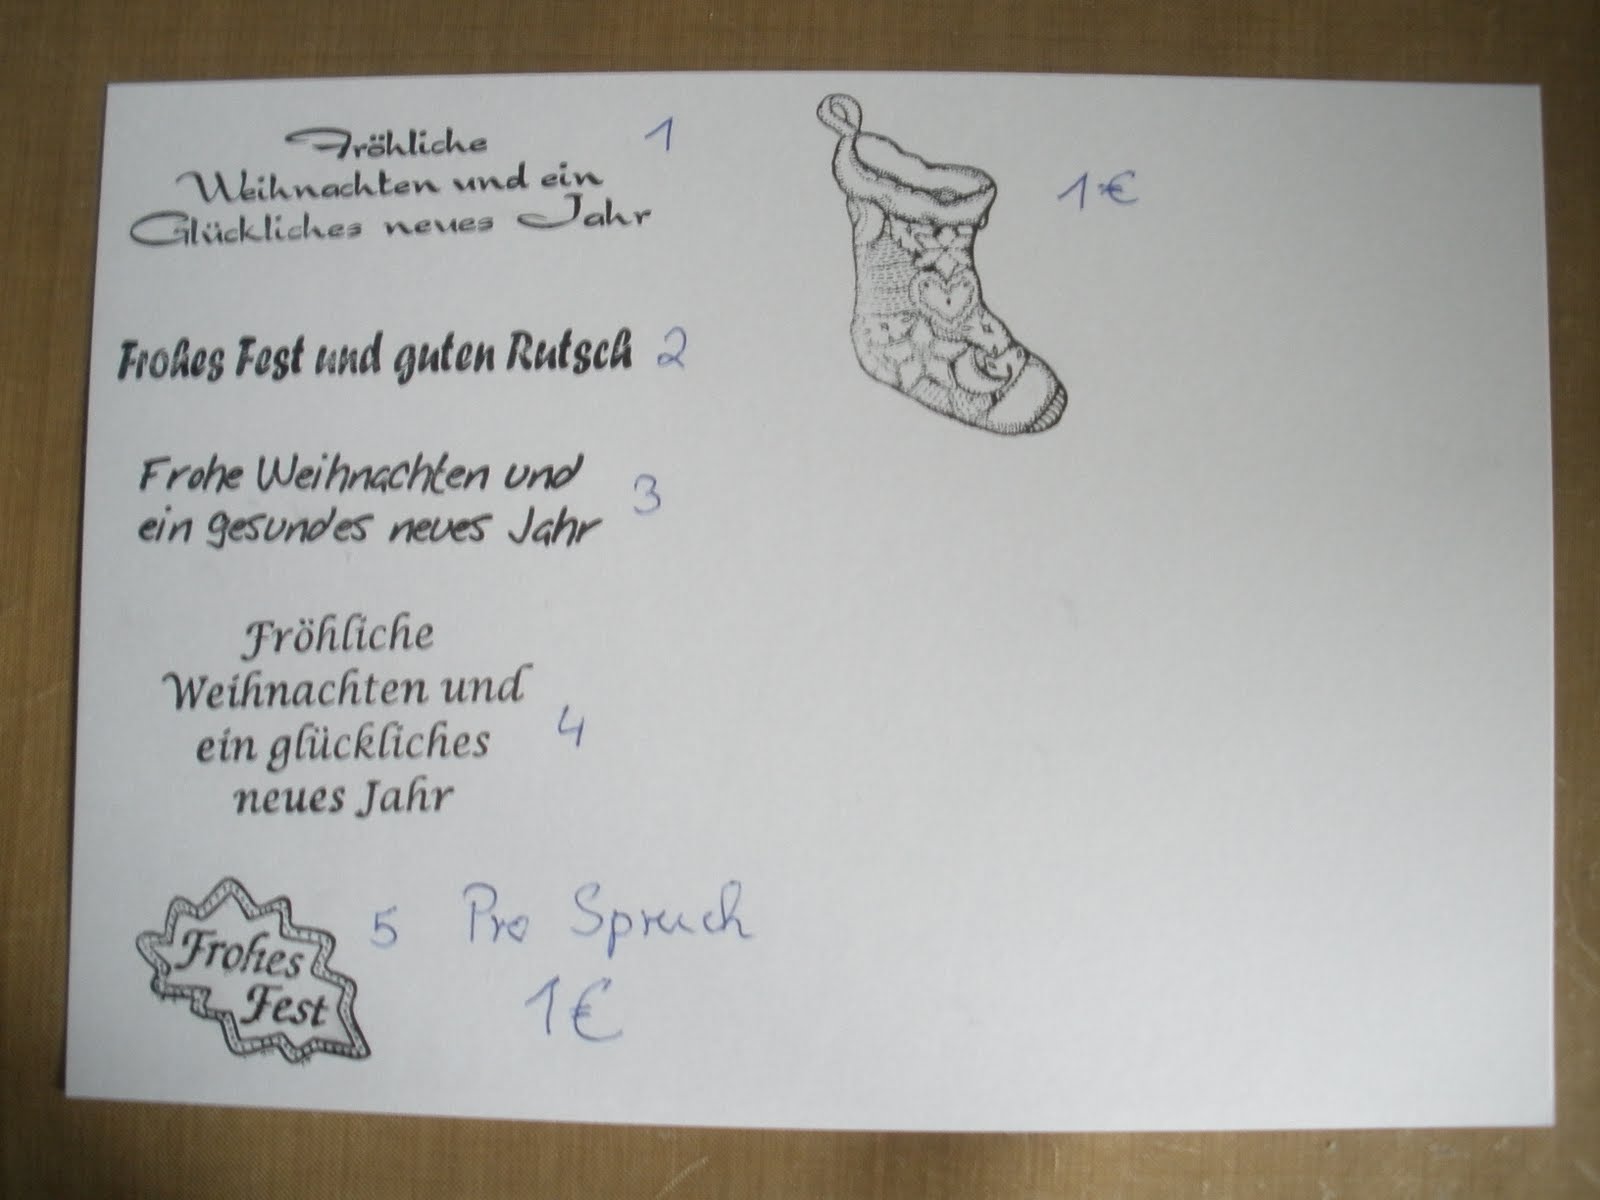 Fröhliche 1
Weihnachten und ein
Glückliches neues Jahr
Frohes Fest und guten Rutsch 2
Frohe Weihnachten und
ein gesundes neues Jahr 3
Fröhliche
Weihnachten und
ein glückliches 4
neues Jahr
Frohes
Fest
5 Pro Spruch
1€
1€